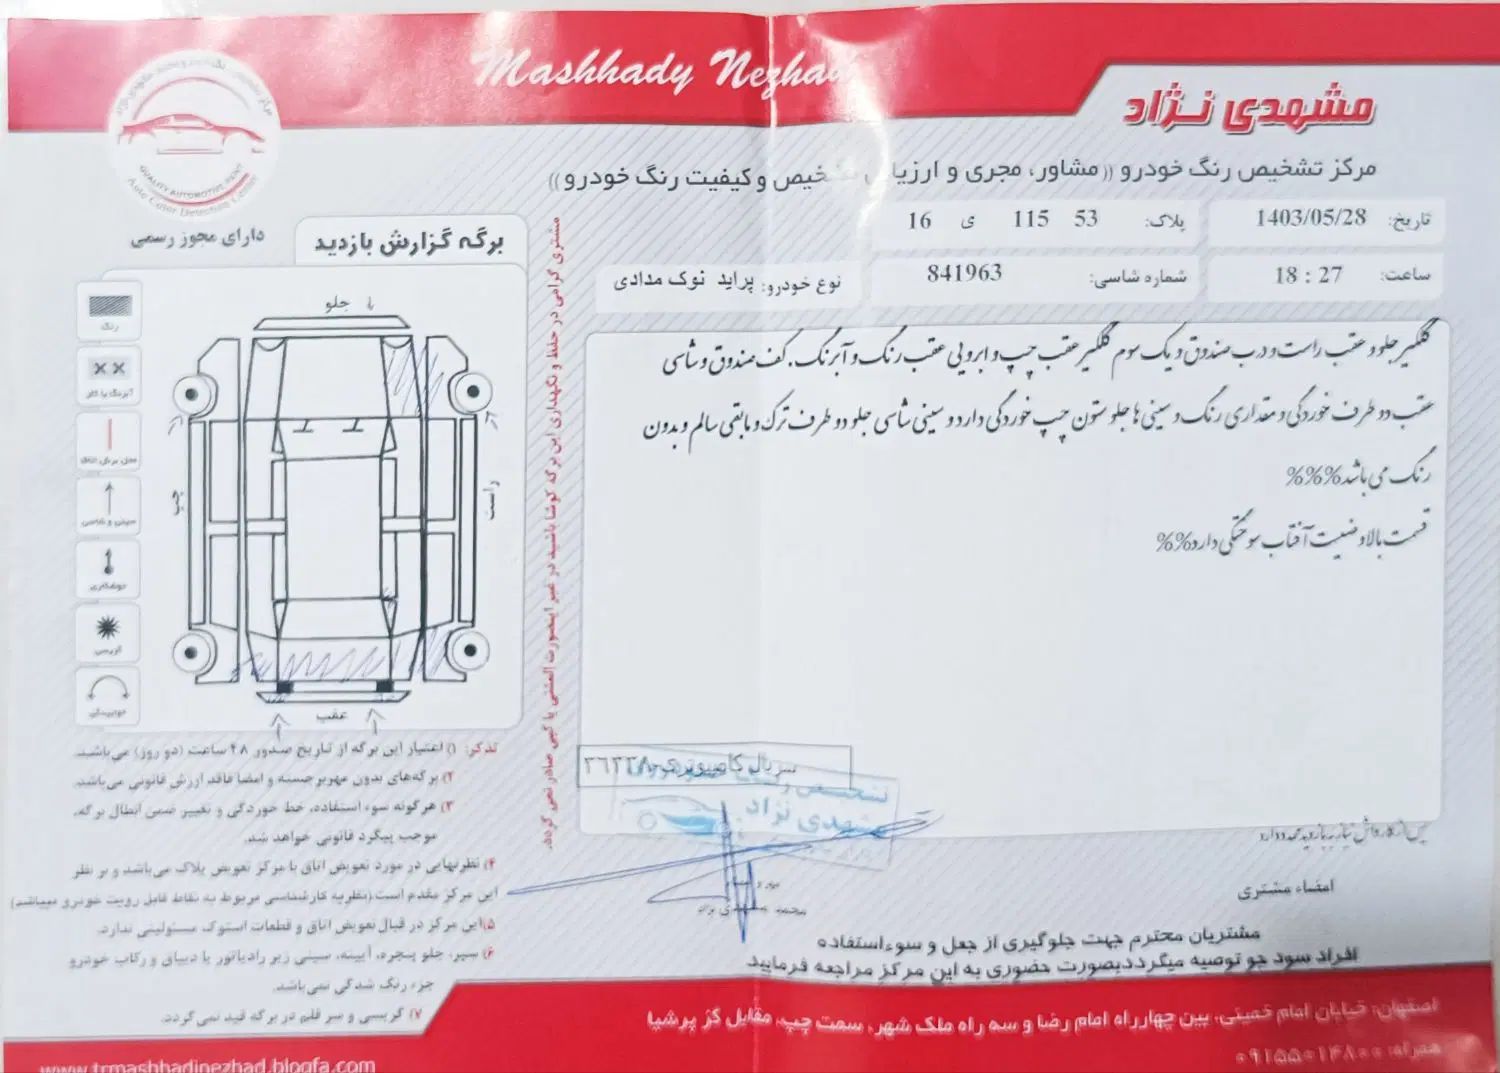 Mashhady Nezhad
مشهدی نژاد
مرکز تشخیص رنگ خودرو ((مشاور، مجری و ارزیابی تشخیص و کیفیت رنگ خودرو))
QUALITY AUTOMOTIVE PAINT
Auto Color Detection Center
دارای مجوز رسمی
تاریخ: 1403/05/28
پلاک: 53 115 ی 16
ساعت: 18 : 27
شماره شاسی: 841963
نوع خودرو: پراید نوک مدادی
برگه گزارش بازدید
گلگیر جلو و عقب راست و درب صندوق و یک سوم گلگیر عقب چپ و ابرویی عقب رنگ و آبرنگ . کف صندوق و شاسی
عقب دو طرف خوردگی و مقداری رنگ و سینی ها جلو ستون چپ خوردگی دارد و سینی شاسی جلو دو طرف ترک و مابقی سالم و بدون
رنگ می باشد%%%
قسمت بالا وضعیت آفتاب سوختگی دارد%%
جلو
چپ
راست
عقب
رنگ
آبرنگ یا کاور
محل برش اتاق
سینی و شاسی
مشتری گرامی در حفظ و نگهداری این برگه کوشا باشید در غیر اینصورت المثنی یا کپی صادر نمی گردد.
تذکر: ۱) اعتبار این برگه از تاریخ صدور ۴۸ ساعت (دو روز) می‌باشد.
۲) برگه‌های بدون مهر برجسته و امضا فاقد ارزش قانونی می‌باشد.
۳) هرگونه سوء استفاده، خط خوردگی و تغییر ضمن ابطال برگه،
موجب پیگرد قانونی خواهد شد.
۴) نظر نهایی در مورد تعویض اتاق با مرکز تعویض پلاک می‌باشد و بر نظر
این مرکز مقدم است.(نظریه کارشناسی مربوط به نقاط قابل رویت خودرو میباشد)
۵) این مرکز در قبال تعویض اتاق و قطعات استوک مسئولیتی ندارد.
۶) سپر، جلو پنجره، آیینه، سینی زیر رادیاتور یا دیاق و رکاب خودرو
جزء رنگ شدگی نمی‌باشد.
۷) گریسی و سر قلم در برگه قید نمی‌گردد.
سریال کامپیوتری
مشهدی نژاد
امضاء مشتری
مشتریان محترم جهت جلوگیری از جعل و سوءاستفاده
افراد سود جو توصیه میگردد بصورت حضوری به این مرکز مراجعه فرمایید
اصفهان: خیابان امام خمینی، بین چهارراه امام رضا و سه راه ملک شهر، سمت چپ، مقابل گز پرشیا
همراه: ۰۹۱۵۵۰۱۴۸۰۰
www.trmashhadinezhad.blogfa.com